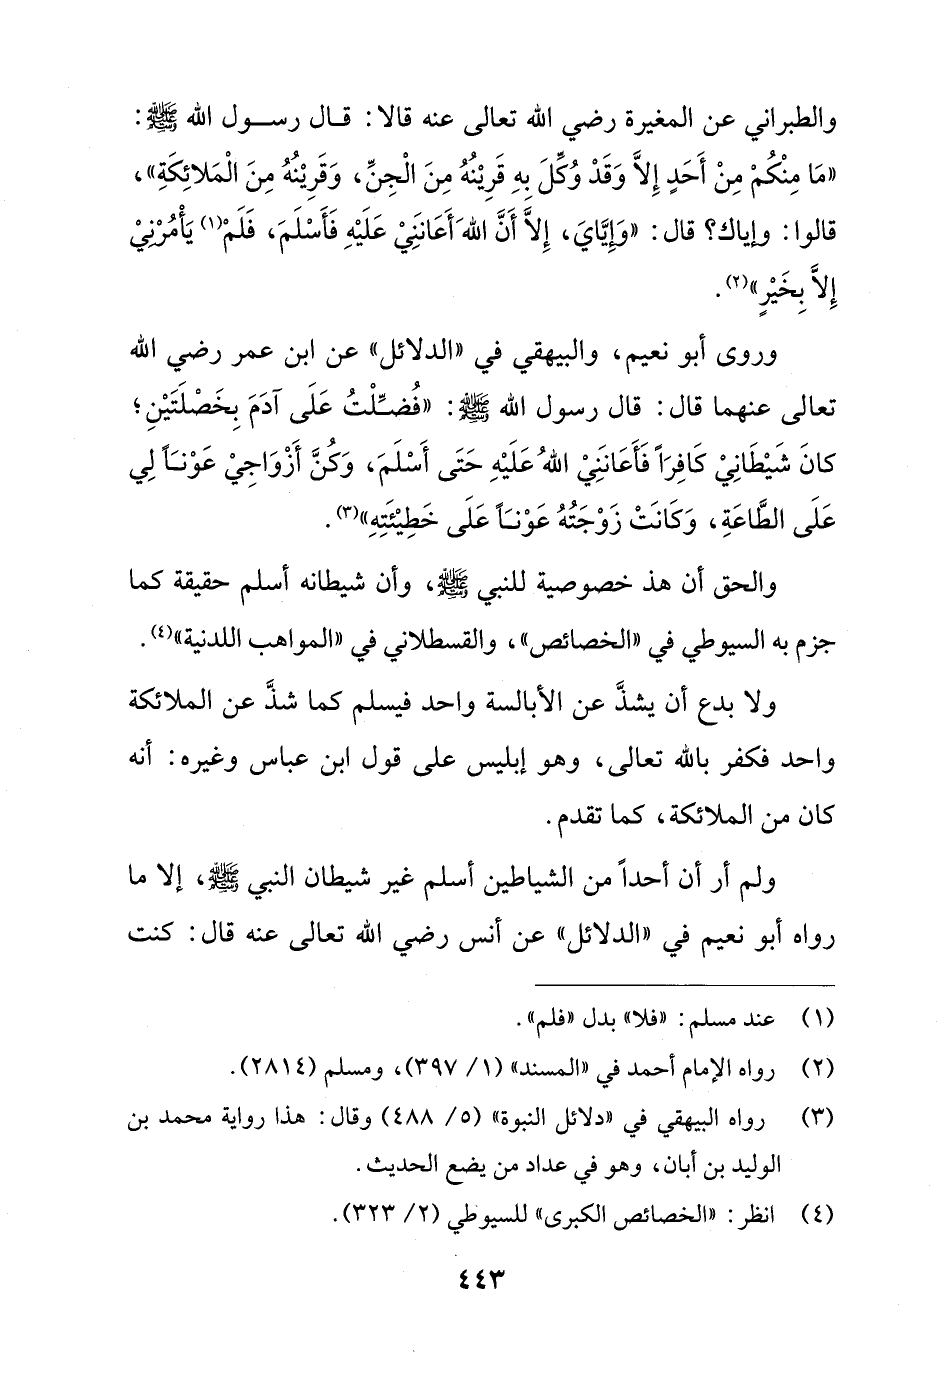 والطبراني عن المغيرة رضي الله تعالى عنه قالا: قـال رسـول الله ﷺ:
«مَا مِنْكُمْ مِنْ أَحَدٍ إِلاَّ وَقَدْ وُكِّلَ بِهِ قَرِيْنُهُ مِنَ الْجِنِّ، وَقَرِيْنُهُ مِنَ الْمَلائِكَةِ»،
قالوا: وإياك؟ قال: «وَإِيَّايَ، إِلاَّ أَنَّ اللهَ أَعَانَنِيْ عَلَيْهِ فَأَسْلَمَ، فَلَمْ(١) يَأْمُرْنِيْ
إِلاَّ بِخَيْرٍ»(٢).
وروى أبو نعيم، والبيهقي في «الدلائل» عن ابن عمر رضي الله
تعالى عنهما قال: قال رسول الله ﷺ: «فُضِّلْتُ عَلَى آدَمَ بِخَصْلَتَيْنِ؛
كانَ شَيْطَانِيْ كَافِرَاً فَأَعَانَنِيْ اللهُ عَلَيْهِ حَتَى أَسْلَمَ، وَكُنَّ أَزْوَاجِيْ عَوْنَاً لِي
عَلَى الطَّاعَةِ، وَكَانَتْ زَوْجَتُهُ عَوْنَاً عَلَى خَطِيْئَتِهِ»(٣).
والحق أن هذ خصوصية للنبي ﷺ، وأن شيطانه أسلم حقيقة كما
جزم به السيوطي في «الخصائص»، والقسطلاني في «المواهب اللدنية»(٤).
ولا بدع أن يشذَّ عن الأبالسة واحد فيسلم كما شذَّ عن الملائكة
واحد فكفر بالله تعالى، وهو إبليس على قول ابن عباس وغيره: أنه
كان من الملائكة، كما تقدم.
ولم أر أن أحداً من الشياطين أسلم غير شيطان النبي ﷺ، إلا ما
رواه أبو نعيم في «الدلائل» عن أنس رضي الله تعالى عنه قال: كنت
(١) عند مسلم: «فلا» بدل «فلم».
(٢) رواه الإمام أحمد في «المسند» (١/ ٣٩٧)، ومسلم (٢٨١٤).
(٣) رواه البيهقي في «دلائل النبوة» (٥/ ٤٨٨) وقال: هذا رواية محمد بن
الوليد بن أبان، وهو في عداد من يضع الحديث.
(٤) انظر: «الخصائص الكبرى» للسيوطي (٢/ ٣٢٣).
٤٤٣